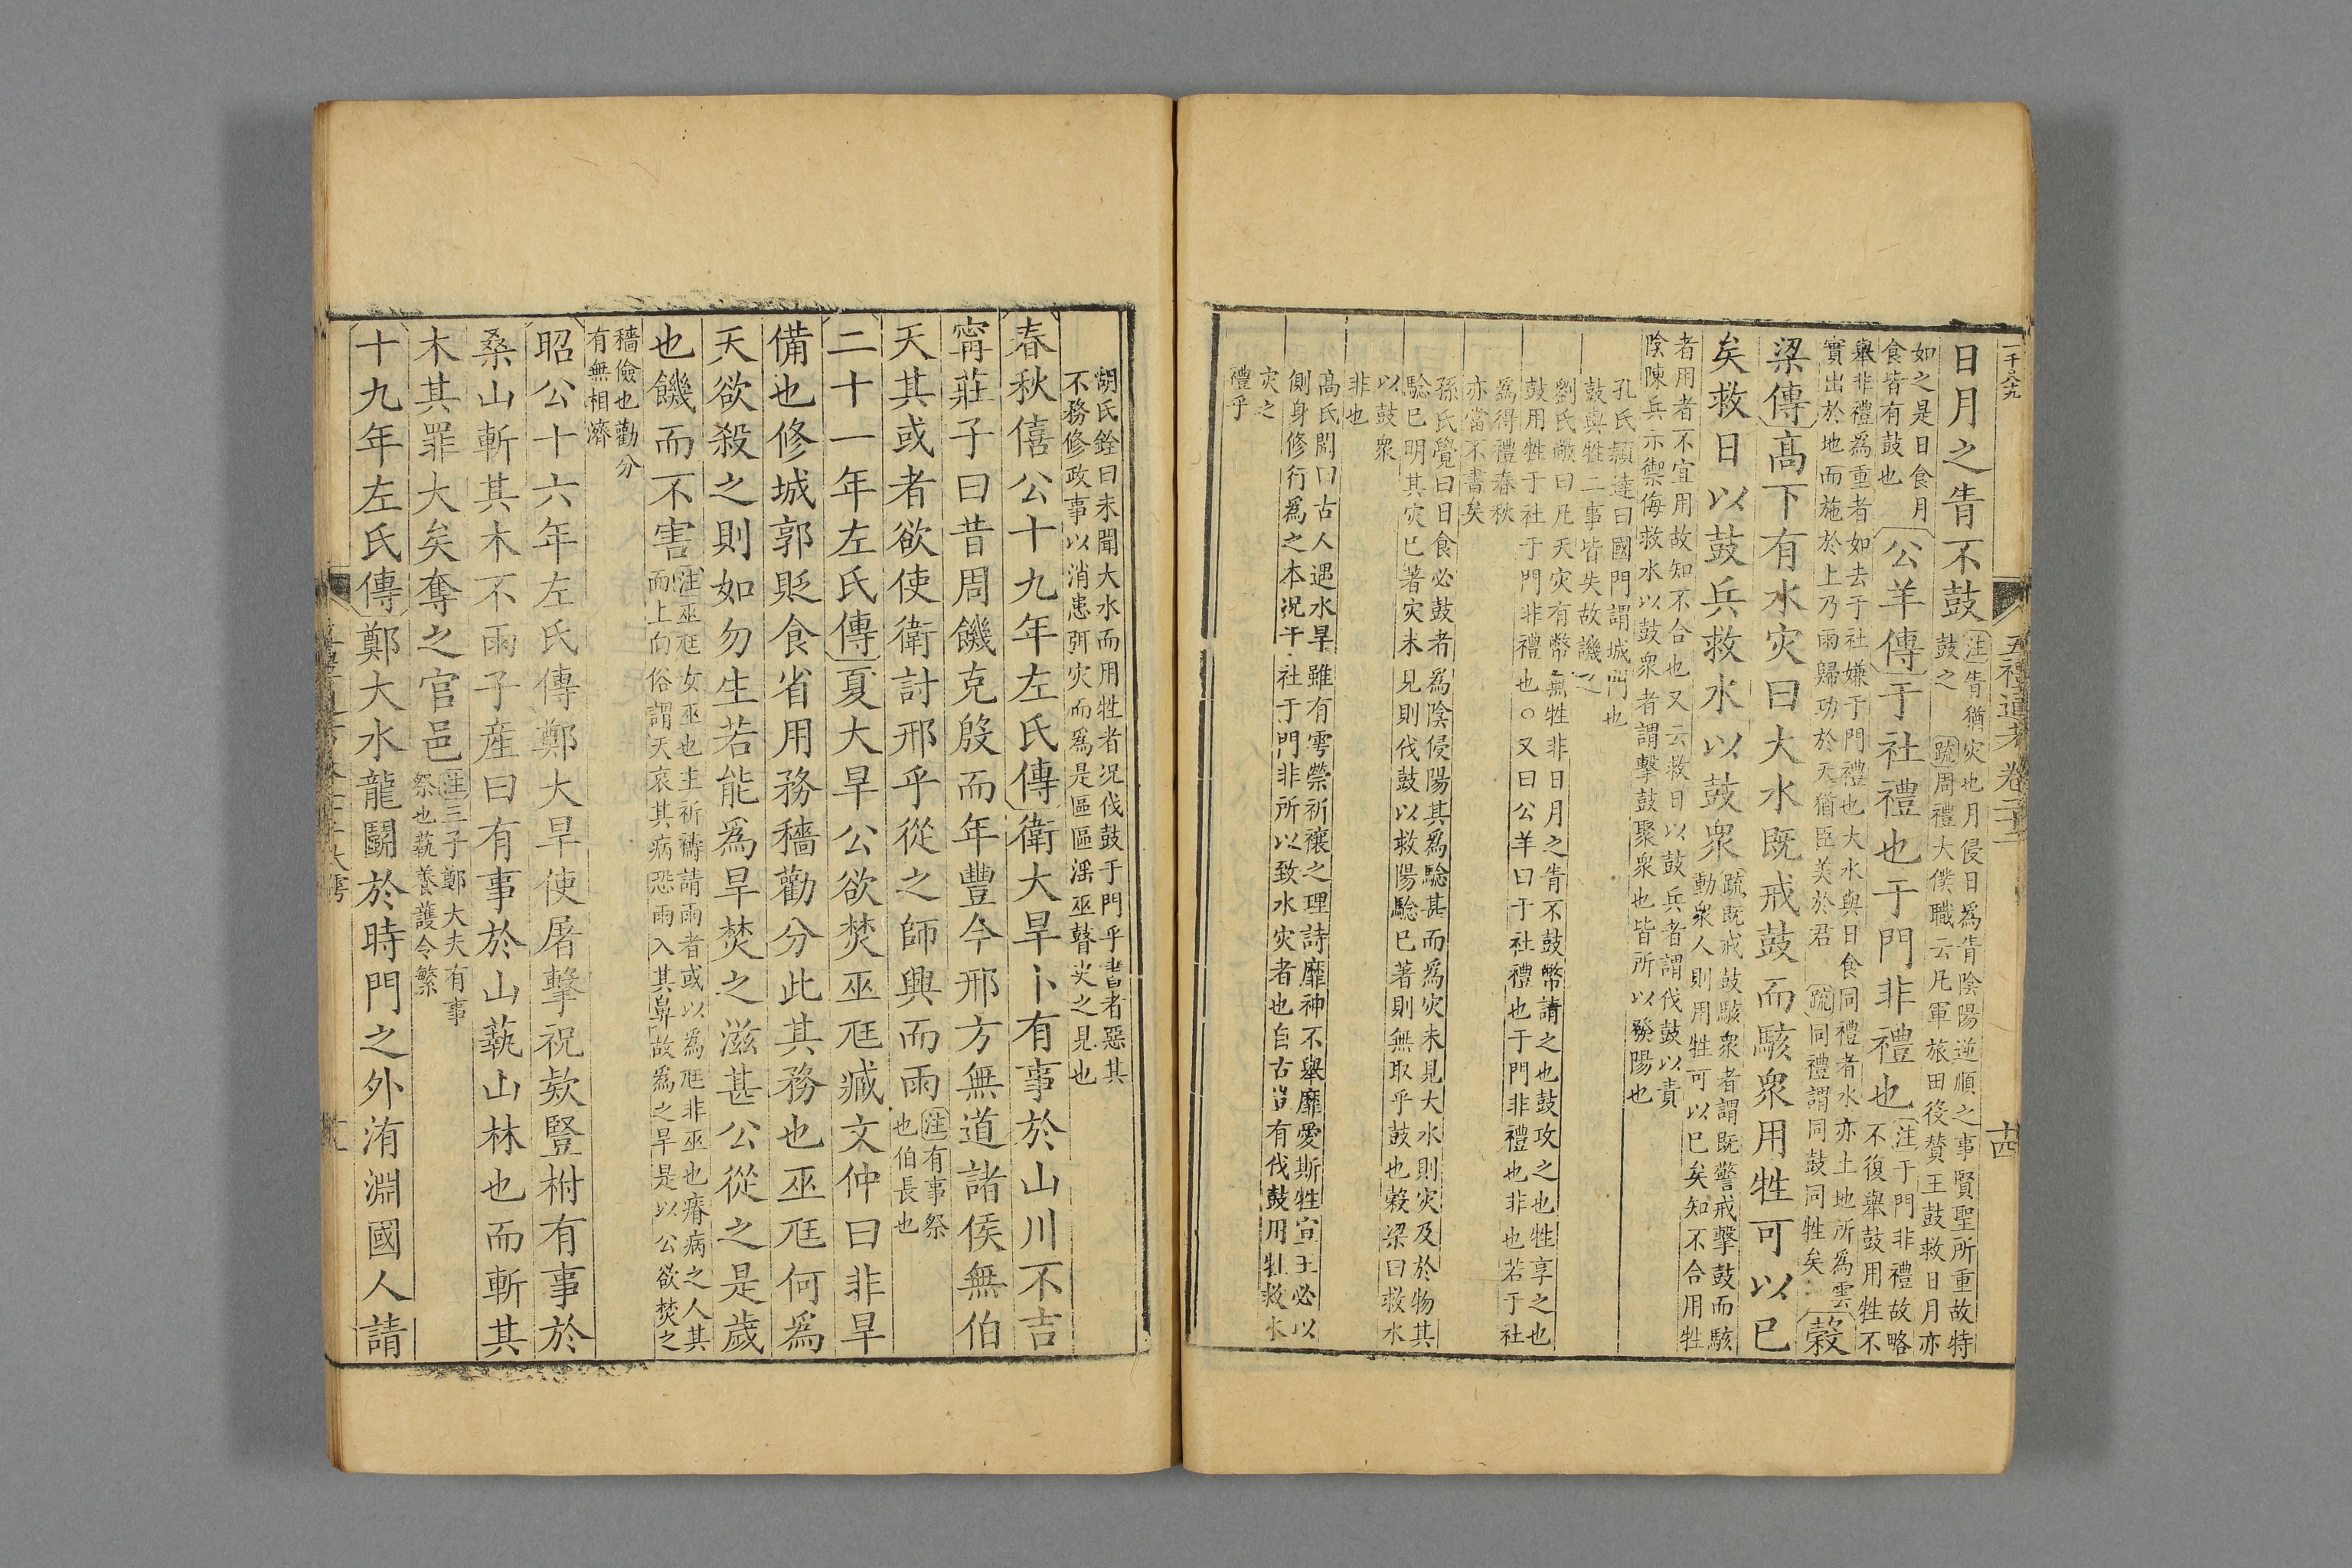 五禮通考卷二十二
十四
日月之眚不鼓注眚猶灾也月侵日爲眚陰陽逆順之事賢聖所重故特
鼓之疏周禮大僕職云凡軍旅田役賛王鼓救日月亦
如之是日食月
食皆有鼓也公羊傳于社禮也于門非禮也注于門非禮故略
不復舉鼓用牲不
舉非禮爲重者如去于社嫌于門禮也大水與日食同禮者水亦土地所爲雲
實出於地而施於上乃雨歸功於天猶臣美於君疏同禮謂同鼓同牲矣穀
梁傳高下有水灾曰大水既戒鼓而駭衆用牲可以已
矣救日以鼓兵救水以鼓衆疏既戒鼓駭衆者謂既警戒擊鼓而駭
動衆人則用牲可以已矣知不合用牲
者用者不宜用故知不合也又云救日以鼓兵者謂伐鼓以責
陰陳兵示禦侮救水以鼓衆者謂擊鼓聚衆也皆所以發陽也
孔氏穎達曰國門謂城門也
鼓與牲二事皆失故譏之
劉氏敞曰凡天灾有幣無牲非日月之眚不鼓幣請之也鼓攻之也牲享之也
鼓用牲于社于門非禮也○又曰公羊曰于社禮也于門非禮也非也若于社
爲得禮春秋
亦當不書矣
孫氏覺曰日食必鼓者爲陰侵陽其爲騐甚而爲灾未見大水則灾及於物其
騐已明其灾已著灾未見則伐鼓以救陽騐已著則無取乎鼓也榖梁曰救水
以鼓衆
非也
高氏閌曰古人遇水旱雖有雩禜祈禳之理詩靡神不舉靡愛斯牲宣王必以
側身修行爲之本況于社于門非所以致水灾者也自古豈有伐鼓用牲救水
灾之
禮乎
胡氏銓曰未聞大水而用牲者況伐鼓于門乎書者惡其
不務修政事以消患弭灾而爲是區區滛巫瞽史之見也
春秋僖公十九年左氏傳衛大旱卜有事於山川不吉
甯莊子曰昔周饑克殷而年豐今邢方無道諸侯無伯
天其或者欲使衛討邢乎從之師興而雨注有事祭
也伯長也
二十一年左氏傳夏大旱公欲焚巫尫臧文仲曰非旱
備也修城郭貶食省用務穡勸分此其務也巫尫何爲
天欲殺之則如勿生若能爲旱焚之滋甚公從之是歲
也饑而不害注巫尫女巫也主祈禱請雨者或以爲尫非巫也瘠病之人其
而上向俗謂天哀其病恐雨入其鼻故爲之旱是以公欲焚之
穡儉也勸分
有無相濟
昭公十六年左氏傳鄭大旱使屠擊祝欵豎柎有事於
桑山斬其木不雨子産曰有事於山蓺山林也而斬其
木其罪大矣奪之官邑注三子鄭大夫有事
祭也蓺養護令繁
十九年左氏傳鄭大水龍鬭於時門之外洧淵國人請